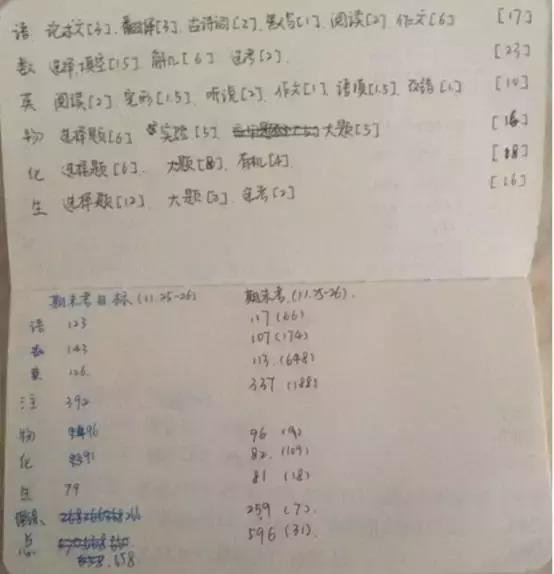 语 论述文[3]. 翻译[3]. 古诗词[2]. [1]. 阅读[2]. 作文[6] [17]
数 选择填空[15]. 解几[6]. 选考[2]. [23]
英 阅读[2]. 完形[1.5]. 听说[2]. 作文[1]. 语填[1.5]. 改错[1] [10]
物 选择题[6] 实验[5]. 大题[5] [16]
化 选择题[6]. 大题[8]. 有机[4]. [18]
生 选择题[12]. 大题[2]. 选考[2] [16]
期末考目标(11.25-26) 期末考(11.25-26).
语 123 117(66)
数 143 107(174)
英 126. 113.(648)
392 337(188)
物 96 96(9)
化 91 82.(109)
生 79 81(18)
266 259(7).
总 596(31).
658.